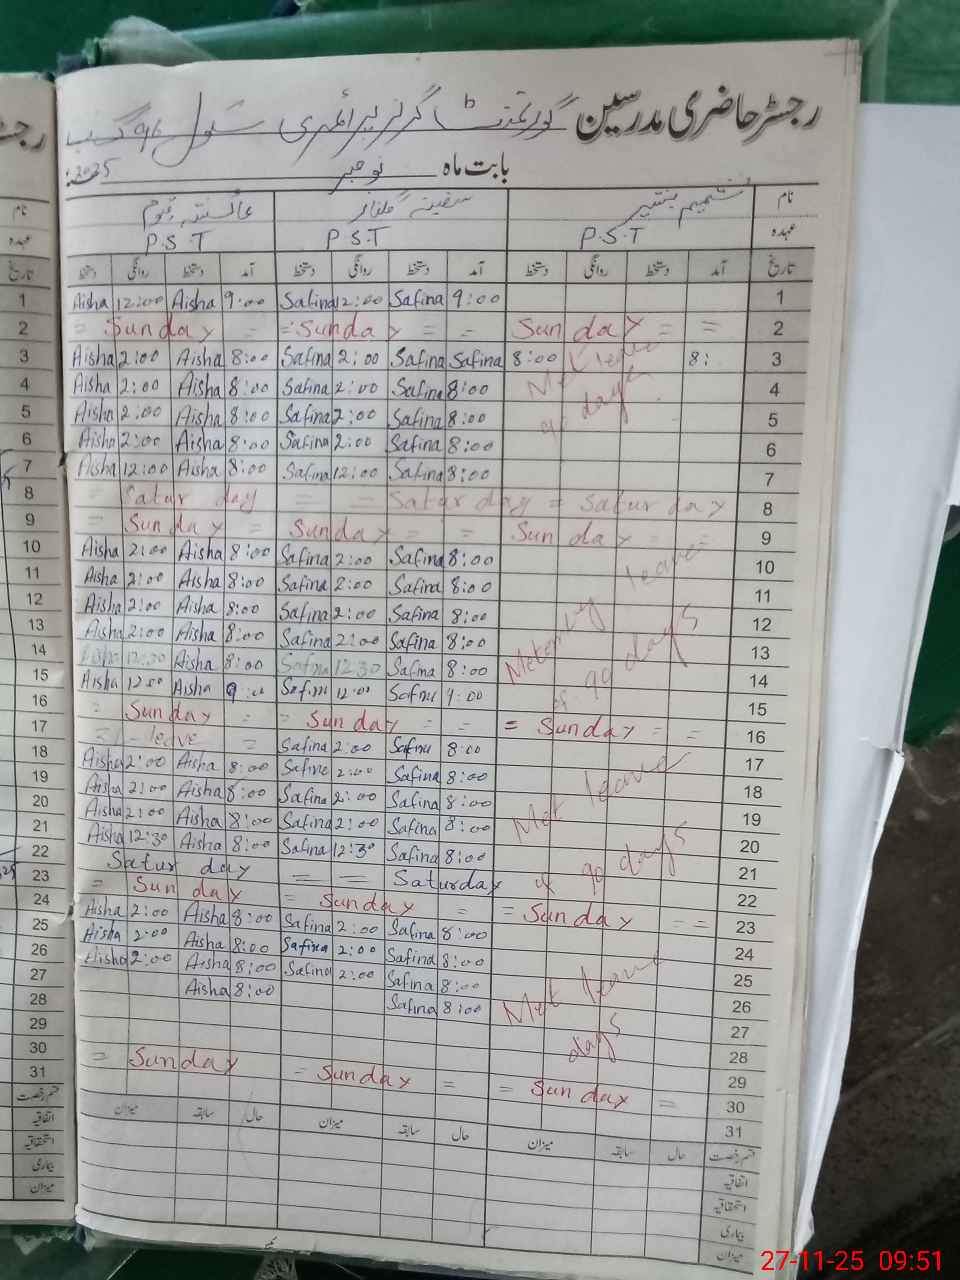 رجسٹر حاضری مدرسین گورنمنٹ گرلز پرائمری سکول 96 گ ب
بابت ماہ نومبر 2025ء
نام شمیم بشیر سفینہ گلفام عائشہ قیوم
عہدہ P.S.T P.S.T P.S.T
تاریخ آمد دستخط روانگی دستخط آمد دستخط روانگی دستخط آمد دستخط روانگی دستخط
1 Aisha 12:00 Aisha 9:00 Safina 12:00 Safina 9:00 1
2 = Sunday = = Sunday = = Sunday = = 2
3 Aisha 2:00 Aisha 8:00 Safina 2:00 Safina Safina 8:00 Met leave 8: 3
4 Aisha 2:00 Aisha 8:00 Safina 2:00 Safina 8:00 days 4
5 Aisha 2:00 Aisha 8:00 Safina 2:00 Safina 8:00 5
6 Aisha 2:00 Aisha 8:00 Safina 2:00 Safina 8:00 6
7 Aisha 12:00 Aisha 8:00 Safina 12:00 Safina 8:00 7
8 = Satur day = = Satur day = Satur day 8
9 = Sunday = Sunday = = Sunday = = 9
10 Aisha 2:00 Aisha 8:00 Safina 2:00 Safina 8:00 10
11 Aisha 2:00 Aisha 8:00 Safina 2:00 Safina 8:00 leave 11
12 Aisha 2:00 Aisha 8:00 Safina 2:00 Safina 8:00 12
13 Aisha 2:00 Aisha 8:00 Safina 2:00 Safina 8:00 90 days 13
14 Aisha 12:30 Aisha 8:00 Safina 12:30 Safina 8:00 14
15 Aisha 12:00 Aisha 9:00 Safina 12:00 Safina 9:00 15
16 = Sunday = = Sunday = = = Sunday = = 16
17 leave = Safina 2:00 Safina 8:00 17
18 Aisha 2:00 Aisha 8:00 Safina 2:00 Safina 8:00 Met leave 18
19 Aisha 2:00 Aisha 8:00 Safina 2:00 Safina 8:00 19
20 Aisha 2:00 Aisha 8:00 Safina 2:00 Safina 8:00 20
21 Aisha 12:30 Aisha 8:00 Safina 12:30 Safina 8:00 of 90 days 21
22 Satur day = = Saturday 22
23 = Sunday = Sunday = = Sunday = = 23
24 Aisha 2:00 Aisha 8:00 Safina 2:00 Safina 8:00 24
25 Aisha 2:00 Aisha 8:00 Safina 2:00 Safina 8:00 25
26 Aisha 2:00 Aisha 8:00 Safina 2:00 Safina 8:00 Met leave 26
27 Aisha 8:00 Safina 8:00 27
28 days 28
29 29
30 = Sunday = Sunday = = Sunday = 30
31 31
قسم رخصت حال سابقہ میزان حال سابقہ میزان حال سابقہ میزان
اتفاقیہ
استحقاقیہ
بیماری
میزان
27-11-25 09:51